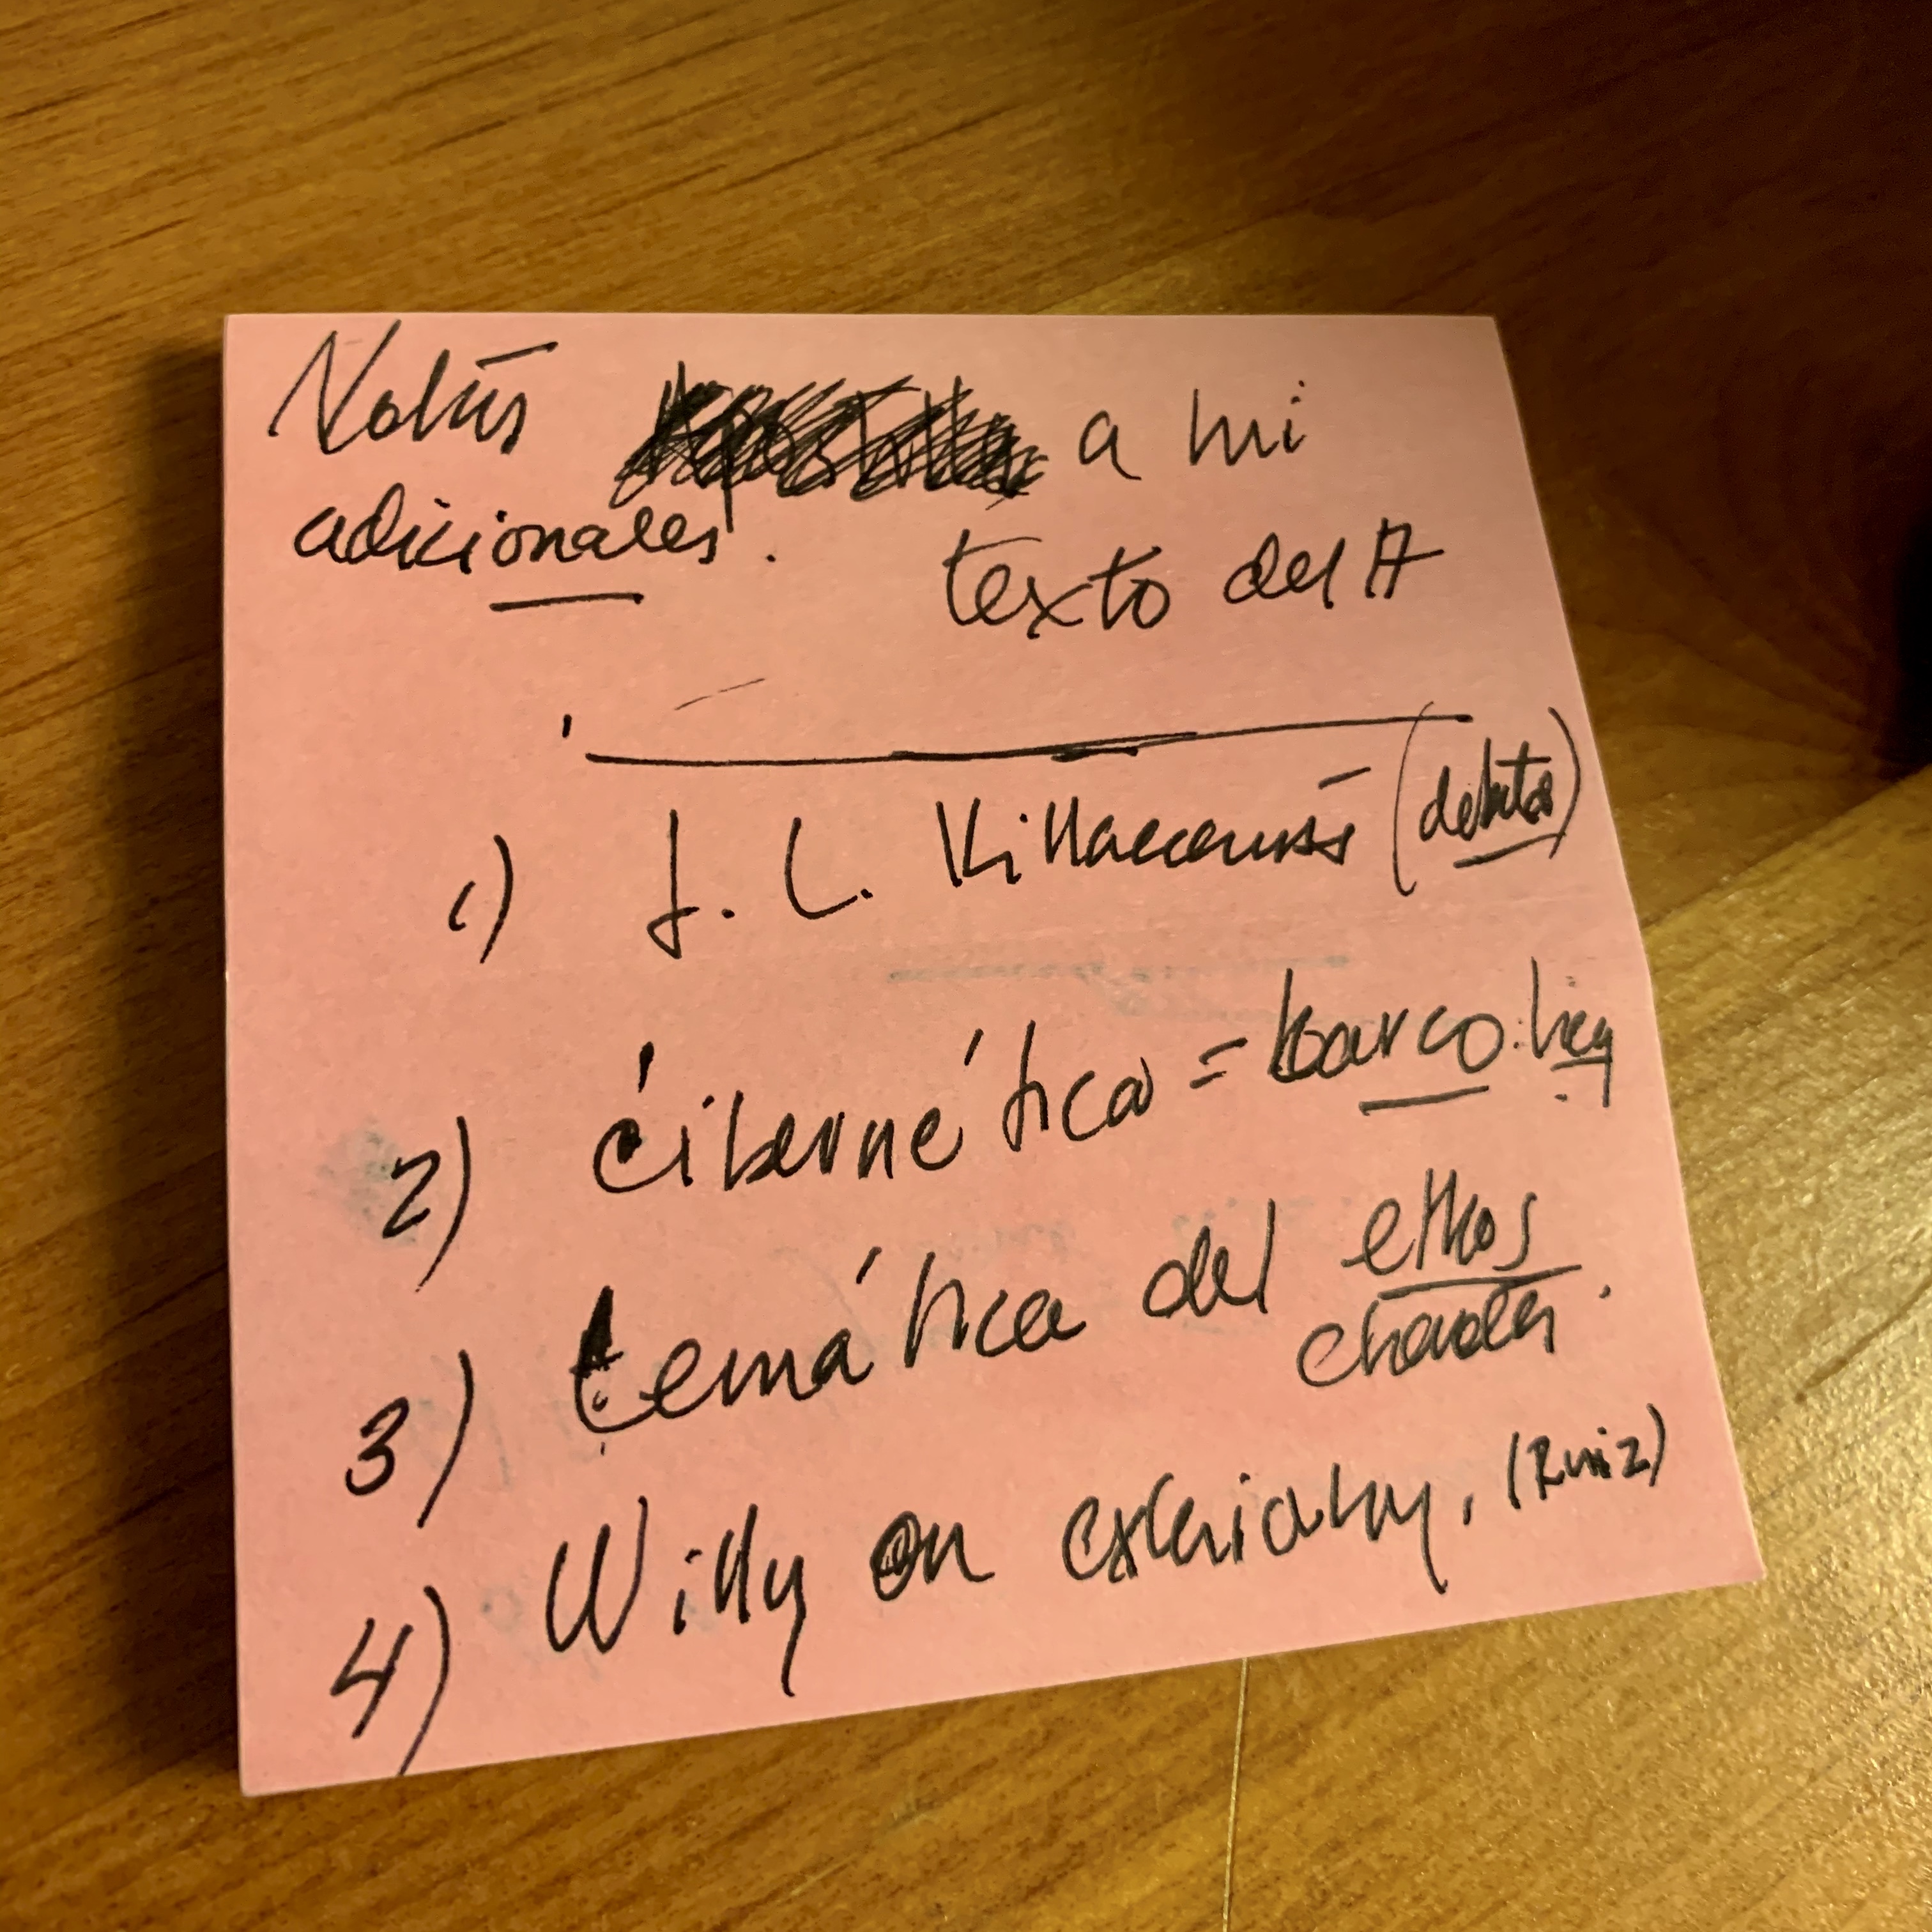 Notas a mi
adicionales.
texto del A
1) J. L. Villacañas (debates)
2) Cibernética = barco: hay
3) temática del ethos
4) Willy on externality. (Ruiz)